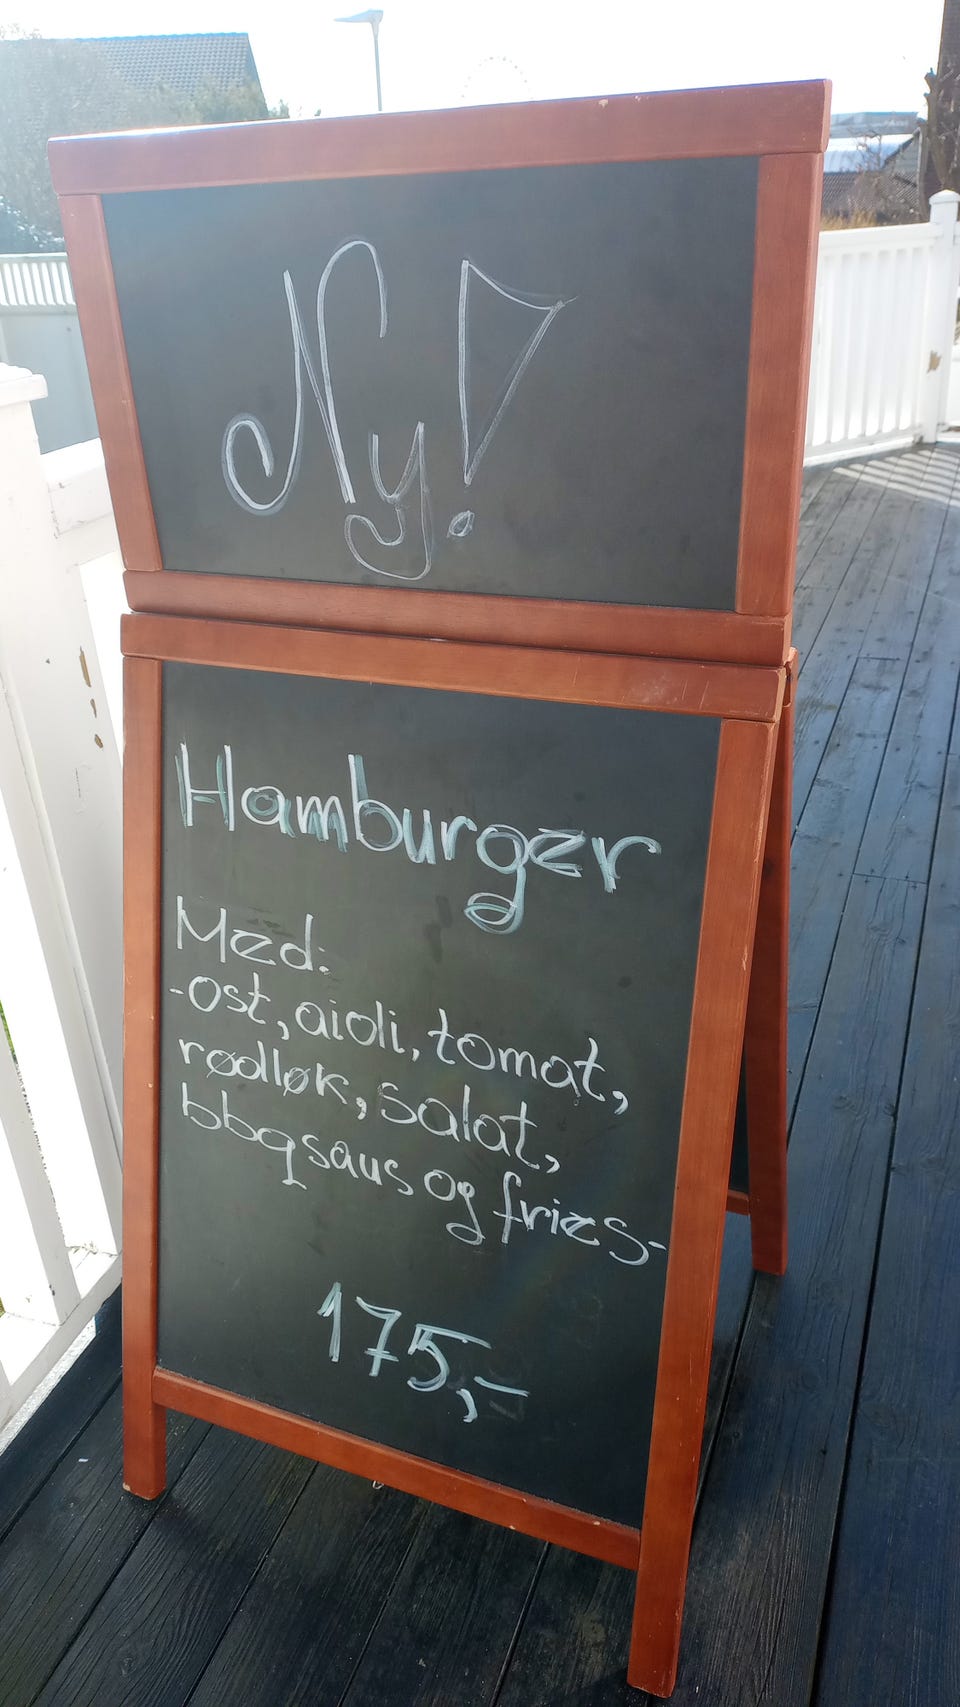 Ny!
Hamburger
Med:
-Ost, aioli, tomat,
rødløk, salat,
bbq saus og fries-
175,-